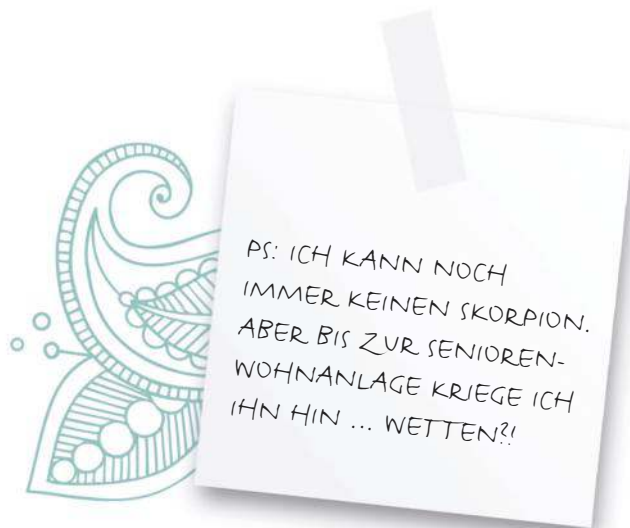 PS: ICH KANN NOCH
IMMER KEINEN SKORPION.
ABER BIS ZUR SENIOREN-
WOHNANLAGE KRIEGE ICH
IHN HIN ... WETTEN?!